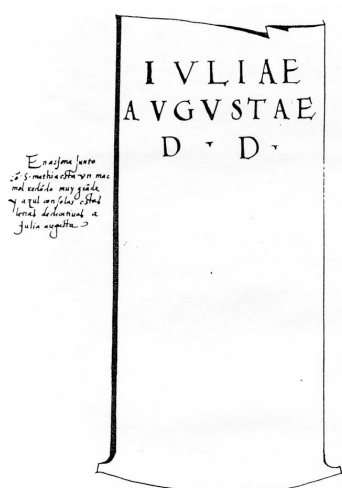 IVLIAE
AVGVSTAE
D · D ·
Junto
S. mathia esta vn mar
mol redõdo muy grãde
y azul con solas estas
letras dedicatiuas a
Julia augusta